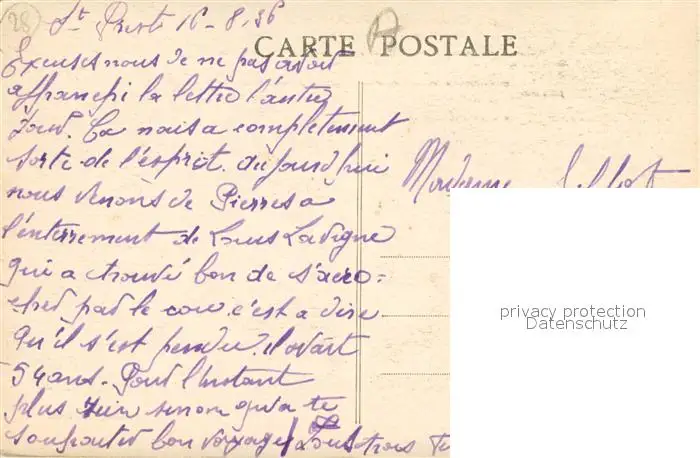 28
St Prest 16-8-36
CARTE POSTALE
Excuses nous de ne pas avoir
affranchi la lettre l'autre
Jour. Ca nous a completement
sorti de l'esprit. aujourd'hui
nous venons de Pierres a
l'enterrement de Louis Lavigne
qui a trouvé bon de s'acro=
cher par le cou c'est a dire
Qu'il s'est pendu. il avait
54 ans. Pour l'Instant
plus rien sinon qu'a te
souhaiter bon voyage Tous trois
Madame
privacy protection
Datenschutz